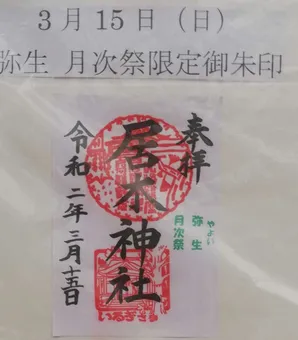 3月15日（日）
弥生 月次祭限定御朱印
奉拝
やよい
弥生
月次祭
居木神社
いるぎさま
令和二年三月十五日